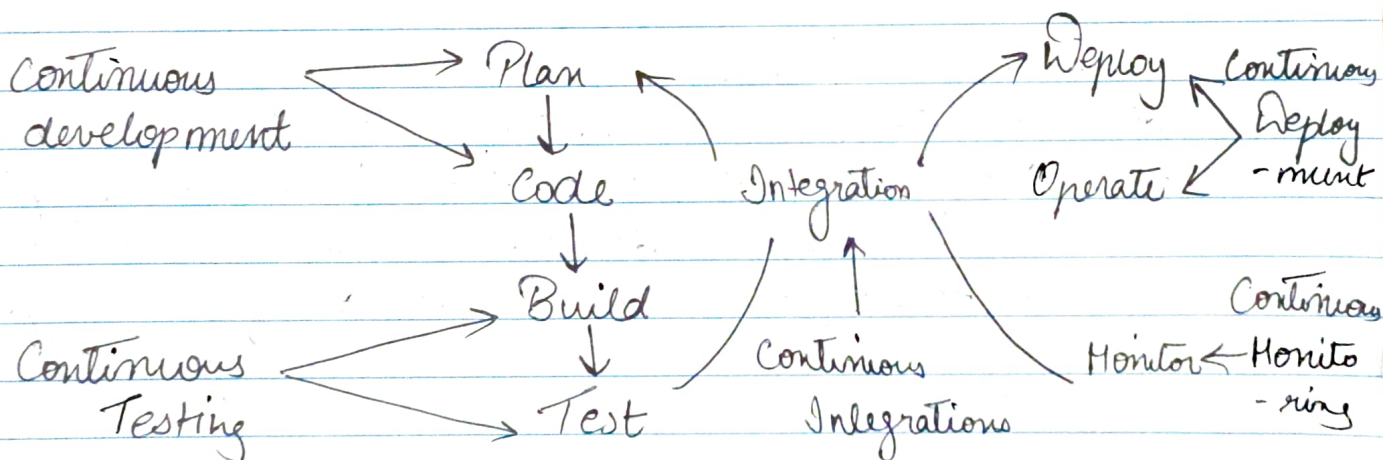 Continuous
development
Plan
Code
Build
Test
Continuous
Testing
Integration
Continuous
Integrations
Deploy
Operate
Continuous
Deploy
-ment
Monitor
Continuous
Monito
-ring